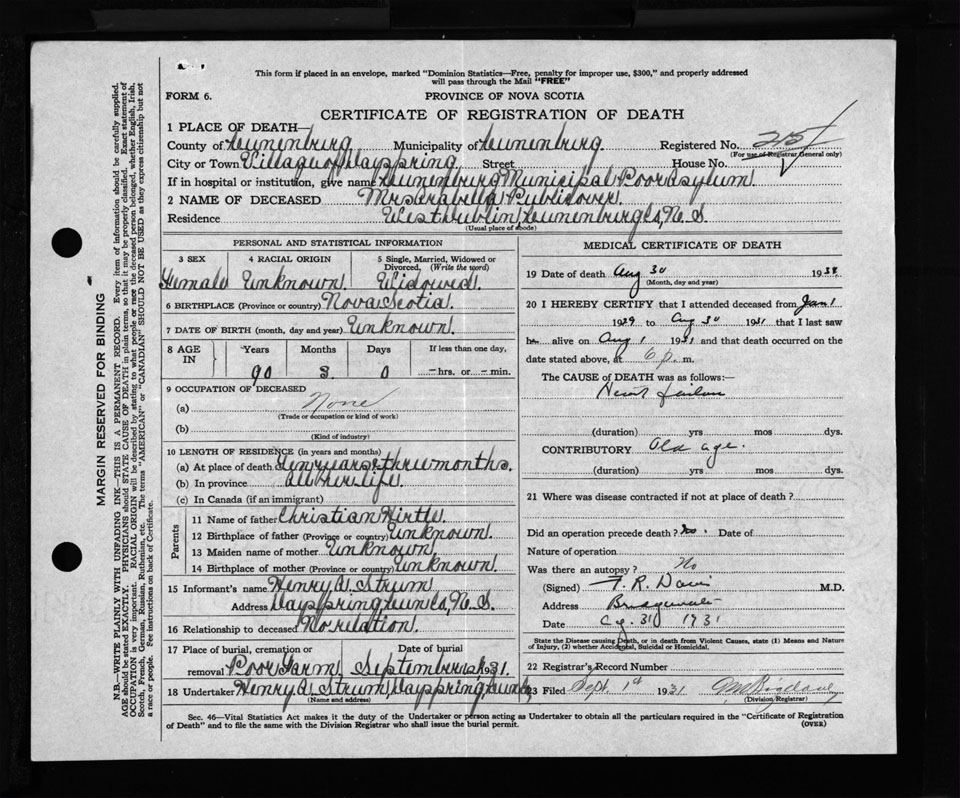 This form if placed in an envelope, marked "Dominion Statistics—Free, penalty for improper use, $300," and properly addressed
will pass through the Mail "FREE"
FORM 6.
PROVINCE OF NOVA SCOTIA
CERTIFICATE OF REGISTRATION OF DEATH
1 PLACE OF DEATH—
County of Lunenburg Municipality of Lunenburg Registered No. 
(For use of Registrar General only)
City or Town Village of Dayspring Street House No.
If in hospital or institution, give name Lunenburg Municipal Poor Asylum
2 NAME OF DECEASED Mrs Publicover
Residence West Dublin, Lunenburg Co, N. S.
(Usual place of abode)
PERSONAL AND STATISTICAL INFORMATION
3 SEX 4 RACIAL ORIGIN 5 Single, Married, Widowed or
Divorced. (Write the word)
Female Unknown Widowed.
6 BIRTHPLACE (Province or country) Nova Scotia.
7 DATE OF BIRTH (month, day and year) Unknown.
8 AGE IN Years Months Days If less than one day,
90 3 0 hrs. or min.
9 OCCUPATION OF DECEASED
(a) None
(Trade or occupation or kind of work)
(b)
(Kind of industry)
10 LENGTH OF RESIDENCE (in years and months)
(a) At place of death years three months.
(b) In province all her life.
(c) In Canada (if an immigrant)
Parents
11 Name of father Christian Hirtle.
12 Birthplace of father (Province or country) Unknown.
13 Maiden name of mother Unknown.
14 Birthplace of mother (Province or country) Unknown.
15 Informant's name Henry A. Strum
Address Dayspring Lun Co, N. S.
16 Relationship to deceased No relation.
17 Place of burial, cremation or Date of burial
removal Poor Farm September 31.
18 Undertaker Henry A. Strum, Dayspring Lun Co,
(Name and address)
MEDICAL CERTIFICATE OF DEATH
19 Date of death Aug 30 193
(Month, day and year)
20 I HEREBY CERTIFY that I attended deceased from Jan 1
1929 to Aug 30 1931 that I last saw
alive on Aug 1 1931 and that death occurred on the
date stated above, at 6 p. m.
The CAUSE OF DEATH was as follows:—
Heart failure
(duration) yrs mos dys.
CONTRIBUTORY Old age.
(duration) yrs mos dys.
21 Where was disease contracted if not at place of death?
Did an operation precede death? No. Date of
Nature of operation
Was there an autopsy? No
(Signed) F. R. Davis M.D.
Address Bridgewater
Date 31 1931
State the Disease causing Death, or in death from Violent Causes, state (1) Means and Nature
of Injury, (2) whether Accidental, Suicidal or Homicidal.
22 Registrar's Record Number
23 Filed Sept. 1st 1931
(Division Registrar)
Sec. 46—Vital Statistics Act makes it the duty of the Undertaker or person acting as Undertaker to obtain all the particulars required in the "Certificate of Registration
of Death" and to file the same with the Division Registrar who shall issue the burial permit.
(OVER)
MARGIN RESERVED FOR BINDING
N.B.—WRITE PLAINLY WITH UNFADING INK—THIS IS A PERMANENT RECORD. Every item of information should be carefully supplied.
AGE should be stated EXACTLY. PHYSICIANS should STATE CAUSE OF DEATH in plain terms, so that it may be properly classified. Exact statement of
OCCUPATION is very important. RACIAL ORIGIN will be described by stating to what people or race the deceased person belonged, whether English, Irish,
Scotch, French, German, Russian, Ruthenian, etc. The terms "AMERICAN" or "CANADIAN" SHOULD NOT BE USED as they express citizenship but not
a race or people. See instructions on back of Certificate.